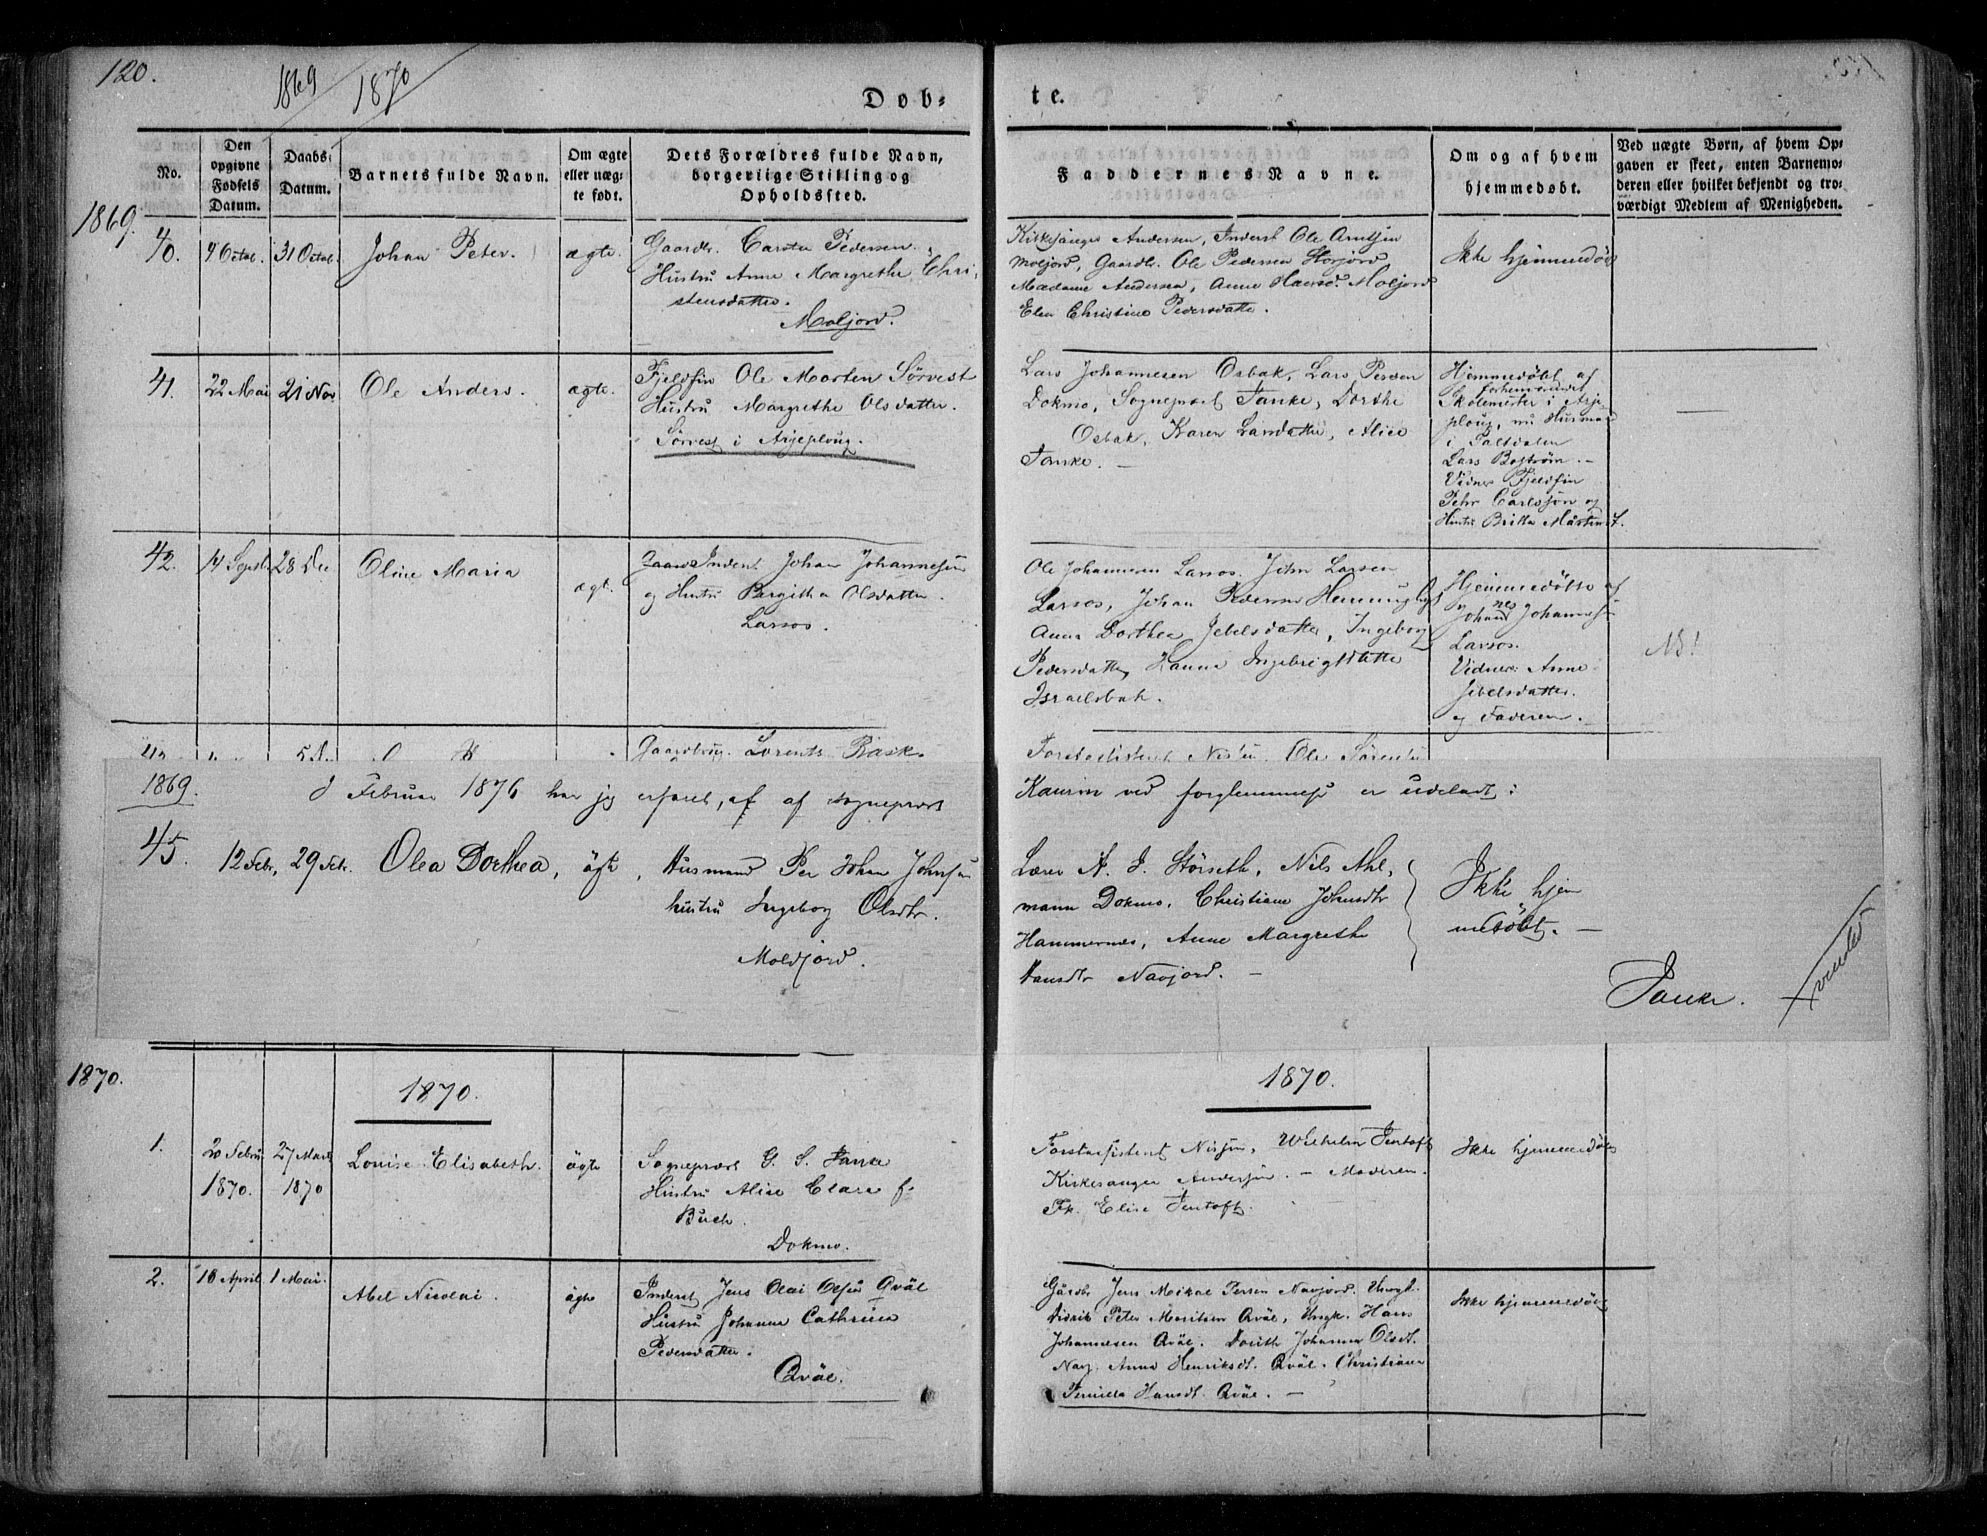 120.
1869
1870
Døb-
te.
No.
Den opgivne Fødsels Datum.
Daabs-Datum.
Barnets fulde Navn.
Om ægte eller uæg-te født.
Dets Forældres fulde Navn, borgerlige Stilling og Opholdssted.
Faddernes Navne.
Om og af hvem hjemmedøbt.
Ved uægte Børn, af hvem Op-
gaven er skeet, enten Barnemo-
deren eller hvilket bekjendt og tro-
værdigt Medlem af Menigheden.
1869.
40. 4 Octob. 31 Octob. Johan Peter. ægte.
Gaardbr. Carsten Pedersen.
Hustru Anne Margrethe Chri-
stensdatter.
Moljord.
Kirkesanger Andersen, Inderst Ole Arntsen
Moljord, Gaardb. Ole Pedersen
Madame Andersen, Anne Hansd. Moljord
Elen Christine Pedersdatter.
Ikke hjemmedøbt
41. 22 Mai 21 Nov Ole Anders. ægte.
Fjeldfin Ole Morten Sörvest
Hustru Margrethe Olsdatter.
Sörvest i Arjeploug.
Lars Johannesen Osbak, Lars Persen
Dokmo, Sognepræst Tanke, Dorthe
Osbak, Karen Larsdatter, Alice
Tanke. —
Hjemmedöbt af
forhenværende
Skolemester i Arje-
ploug, nu Husmand
i Saltdalen
Lars Boström. —
Vidner Fjeldfin
Pehr Carlsson og
Hustru Britta Mårtensd.
—
42. 14 Septb 28 Dec Oline Maria ægt.
Johan Johannesen
og Hustru Bergitha Olsdatter.
Larsos.
Ole Johannesen Larsos. John Larsen
Larsos, Johan Pedersen
Anne Dorthea Jebelsdatter, Ingeborg
Pedersdatter, Hanna Ingebrigtsdatter
Israelsbak.
Hjemmedöbt af
Johannes Johannesen
Larsos.
Vidner: Anne
Jebelsdatter.
og Faderen.
NB!
Gaardbrug. Lorents Rask
Forstassistent Nissen. Ole Sörensen
1869.
I Februar 1876 har jeg erfaret, at af Sognepræst
Kaurin ved forglemmelse er udeladt:
45. 12 Febr, 29 Febr. Olea Dorthea, ägte,
Husmand Per Johan Johnsen
hustru Ingeborg Olsdtr.
Moldjord.
Lærer A. J. Störseth, Nils Ahl-
mann Dokmo, Christiane Johnsdtr
Hammernes, Anne Margrethe
Hansdtr Navjord. —
Ikke hjem
medöbt. —
Tanke.
1870.
1870.
1870.
1. 20 Febru 1870. 27 Marts 1870 Louise Elisabeth. ägte
Sognepræst G. S. Tanke
Hustru Alise Clara f.
Buch.
Dokmo.
Forstassistent Nissen, Wilhelm Jentoft
Kirkesanger Andersen. — Moderen.
Frk. Elise Jentoft.
Ikke hjemmedöbt
2. 18 April 1 Mai. Abel Nicolai. ägte
Inderst Jens Olai Olsen Qväl
Hustru Johanna Cathrina
Pedersdatter.
Qväl.
Gårdb. Jens Mikal Persen Navjord. Ungk.
Didrik Peter Moritsen Qväl, Ungk. Hans
Johannesen Qväl. Dorith Johanna Olsdt.
Nav. Anna Henriksdt. Qväl. Christiane
Pernilla Hansdt. Qväl. —
Ikke hjemmedöbt